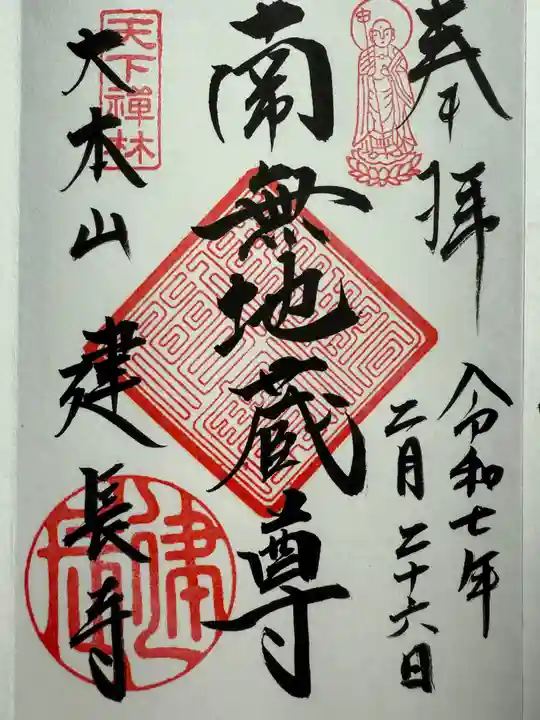 奉拝
令和七年
二月二十六日
南無地蔵尊
天下禅林
大本山 建長寺